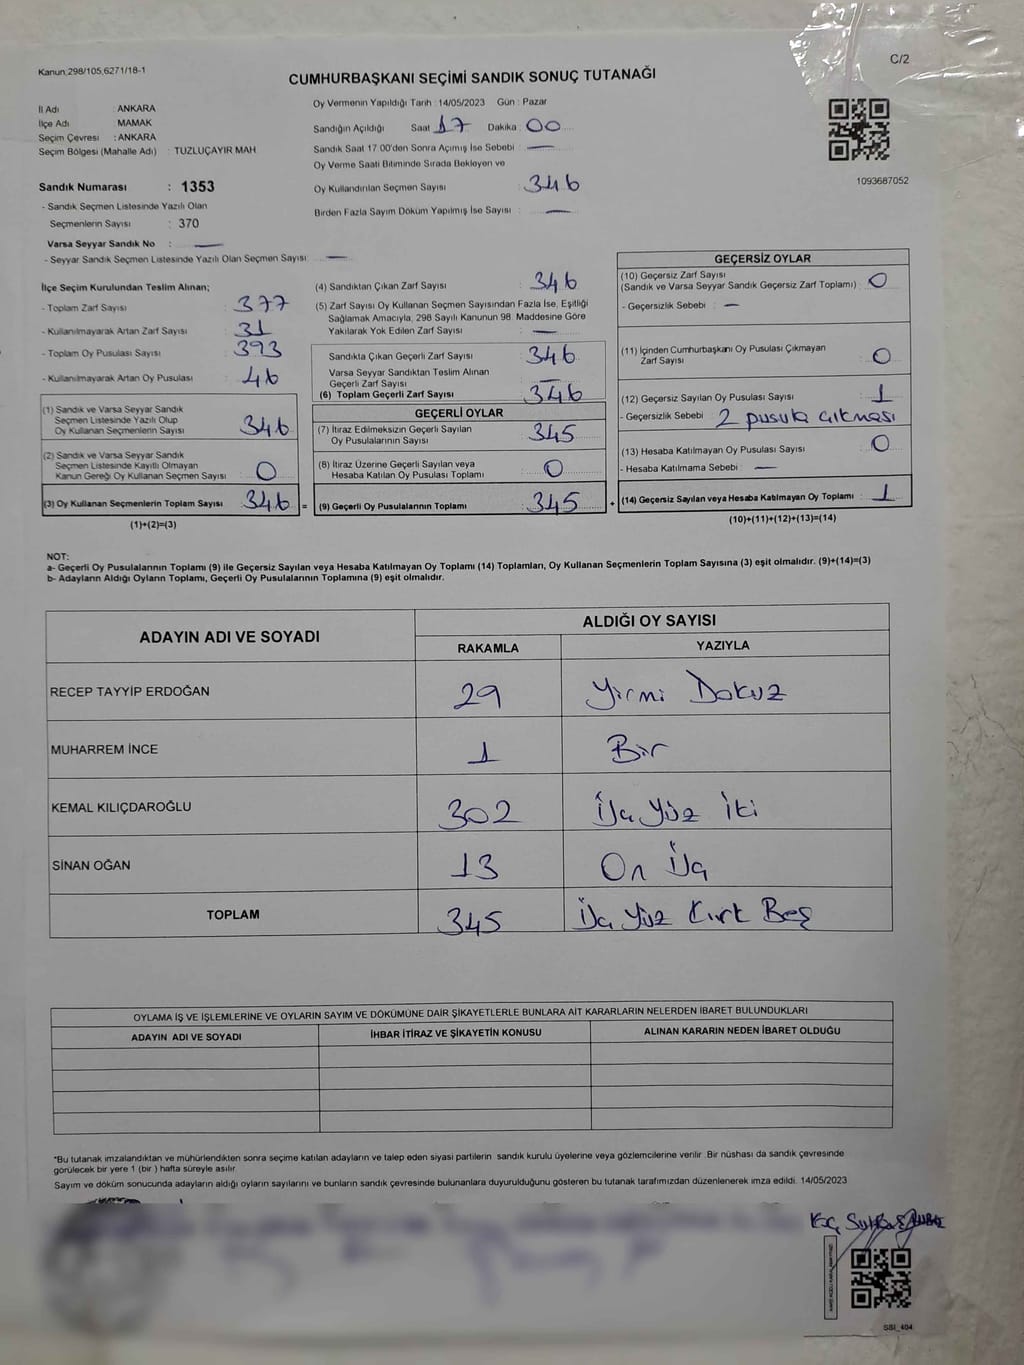 Kanun;298/105,6271/18-1
C/2
CUMHURBAŞKANI SEÇİMİ SANDIK SONUÇ TUTANAĞI
İl Adı : ANKARA
İlçe Adı : MAMAK
Seçim Çevresi : ANKARA
Seçim Bölgesi (Mahalle Adı) : TUZLUÇAYIR MAH
Oy Vermenin Yapıldığı Tarih : 14/05/2023 Gün : Pazar
Sandığın Açıldığı Saat 17 Dakika : 00
Sandık Saat 17:00'den Sonra Açımış İse Sebebi : —
Oy Verme Saati Bitiminde Sırada Bekleyen ve
Oy Kullandırılan Seçmen Sayısı : 346
Birden Fazla Sayım Döküm Yapılmış İse Sayısı : —
1093687052
Sandık Numarası : 1353
- Sandık Seçmen Listesinde Yazılı Olan
Seçmenlerin Sayısı : 370
Varsa Seyyar Sandık No : —
- Seyyar Sandık Seçmen Listesinde Yazılı Olan Seçmen Sayısı: —
İlçe Seçim Kurulundan Teslim Alınan;
- Toplam Zarf Sayısı : 377
- Kullanılmayarak Artan Zarf Sayısı : 31
- Toplam Oy Pusulası Sayısı : 393
- Kullanılmayarak Artan Oy Pusulası : 46
(1) Sandık ve Varsa Seyyar Sandık
Seçmen Listesinde Yazılı Olup
Oy Kullanan Seçmenlerin Sayısı : 346
(2) Sandık ve Varsa Seyyar Sandık
Seçmen Listesinde Kayıtlı Olmayan
Kanun Gereği Oy Kullanan Seçmen Sayısı : 0
(3) Oy Kullanan Seçmenlerin Toplam Sayısı : 346 =
(1)+(2)=(3)
(4) Sandıktan Çıkan Zarf Sayısı : 346
(5) Zarf Sayısı Oy Kullanan Seçmen Sayısından Fazla İse, Eşitliği
Sağlamak Amacıyla, 298 Sayılı Kanunun 98. Maddesine Göre
Yakılarak Yok Edilen Zarf Sayısı : —
Sandıkta Çıkan Geçerli Zarf Sayısı : 346
Varsa Seyyar Sandıktan Teslim Alınan
Geçerli Zarf Sayısı : —
(6) Toplam Geçerli Zarf Sayısı : 346
GEÇERLİ OYLAR
(7) İtiraz Edilmeksizin Geçerli Sayılan
Oy Pusulalarının Sayısı : 345
(8) İtiraz Üzerine Geçerli Sayılan veya
Hesaba Katılan Oy Pusulası Toplamı : 0
(9) Geçerli Oy Pusulalarının Toplamı : 345 +
GEÇERSİZ OYLAR
(10) Geçersiz Zarf Sayısı
(Sandık ve Varsa Seyyar Sandık Geçersiz Zarf Toplamı) : 0
- Geçersizlik Sebebi : —
(11) İçinden Cumhurbaşkanı Oy Pusulası Çıkmayan
Zarf Sayısı : 0
(12) Geçersiz Sayılan Oy Pusulası Sayısı : 1
- Geçersizlik Sebebi : 2 pusula çıkması
(13) Hesaba Katılmayan Oy Pusulası Sayısı : 0
- Hesaba Katılmama Sebebi : —
(14) Geçersiz Sayılan veya Hesaba Katılmayan Oy Toplamı : 1
(10)+(11)+(12)+(13)=(14)
NOT:
a- Geçerli Oy Pusulalarının Toplamı (9) ile Geçersiz Sayılan veya Hesaba Katılmayan Oy Toplamı (14) Toplamları, Oy Kullanan Seçmenlerin Toplam Sayısına (3) eşit olmalıdır. (9)+(14)=(3)
b- Adayların Aldığı Oyların Toplamı, Geçerli Oy Pusulalarının Toplamına (9) eşit olmalıdır.
ADAYIN ADI VE SOYADI
ALDIĞI OY SAYISI
RAKAMLA YAZIYLA
RECEP TAYYİP ERDOĞAN 29 Yirmi Dokuz
MUHARREM İNCE 1 Bir
KEMAL KILIÇDAROĞLU 302 Üç Yüz İki
SİNAN OĞAN 13 On Üç
TOPLAM 345 Üç Yüz Kırk Beş
OYLAMA İŞ VE İŞLEMLERİNE VE OYLARIN SAYIM VE DÖKÜMÜNE DAİR ŞİKAYETLERLE BUNLARA AİT KARARLARIN NELERDEN İBARET BULUNDUKLARI
ADAYIN ADI VE SOYADI İHBAR İTİRAZ VE ŞİKAYETİN KONUSU ALINAN KARARIN NEDEN İBARET OLDUĞU
*Bu tutanak imzalandıktan ve mühürlendikten sonra seçime katılan adayların ve talep eden siyasi partilerin sandık kurulu üyelerine veya gözlemcilerine verilir. Bir nüshası da sandık çevresinde
görülecek bir yere 1 (bir ) hafta süreyle asılır.
Sayım ve döküm sonucunda adayların aldığı oyların sayılarını ve bunların sandık çevresinde bulunanlara duyurulduğunu gösteren bu tutanak tarafımızdan düzenlenerek imza edildi. 14/05/2023
SBI_404